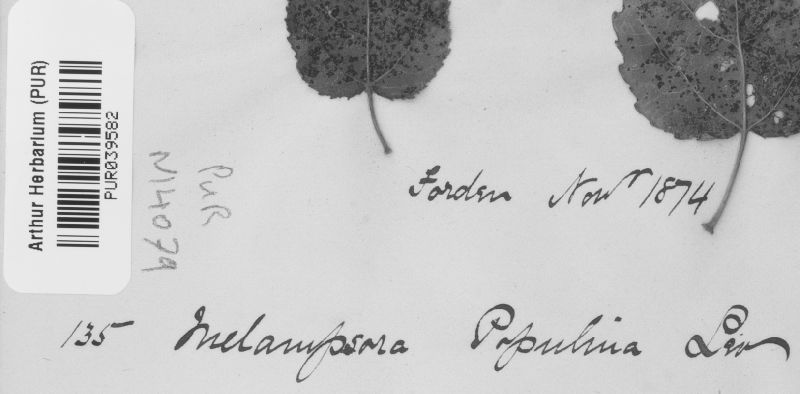 Arthur Herbarium (PUR)
PUR039582
PUR
N14079
Forden Novr 1874
135 Melampsora Populina Lév